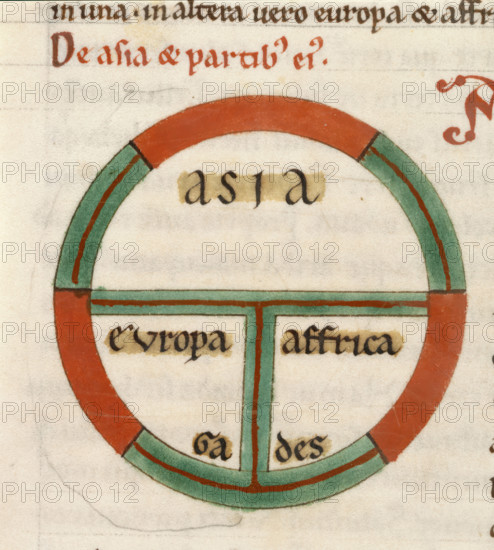 in una · in altera uero europa & affr
De asia & partib' ei'.
asia
europa affrica
Ga des